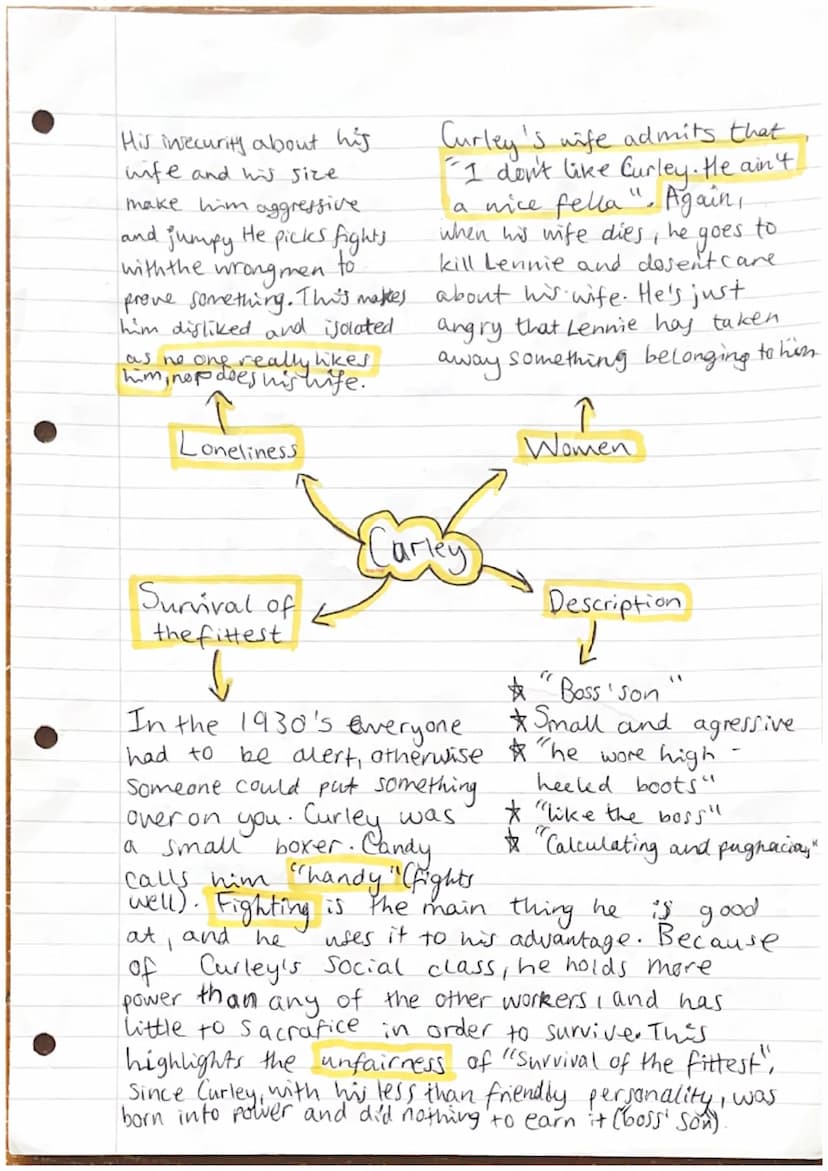 His insecurity about his
wife and his size
make him aggressive
and jumpy He picks fights
with the wrong men to
prove something. This makes
him disliked and isolated
as no one really likes
him, nor does his wife.
Curley's wife admits that
"I don't like Curley. He ain't
a nice fella". Again,
when his wife dies, he goes to
kill Lennie and dosent care
about his wife. He's just
angry that Lennie has taken
away something belonging to him
Loneliness
Women
Curley
Survival of
the fittest
Description
In the 1930's everyone
had to be alert, otherwise
someone could put something
over on you. Curley was
a small boxer. Candy
calls him "handy" (fights
well). Fighting is the main thing he is good
at, and he uses it to his advantage. Because
of Curley's social class, he holds more
power than any of the other workers, and has
little to sacrafice in order to survive. This
highlights the unfairness of "Survival of the fittest",
since Curley, with his less than friendly personality, was
born into power and did nothing to earn it (boss' son).
"Boss' son"
Small and agressive
"he wore high -
heeled boots"
"like the boss"
"Calculating and pugnacious"